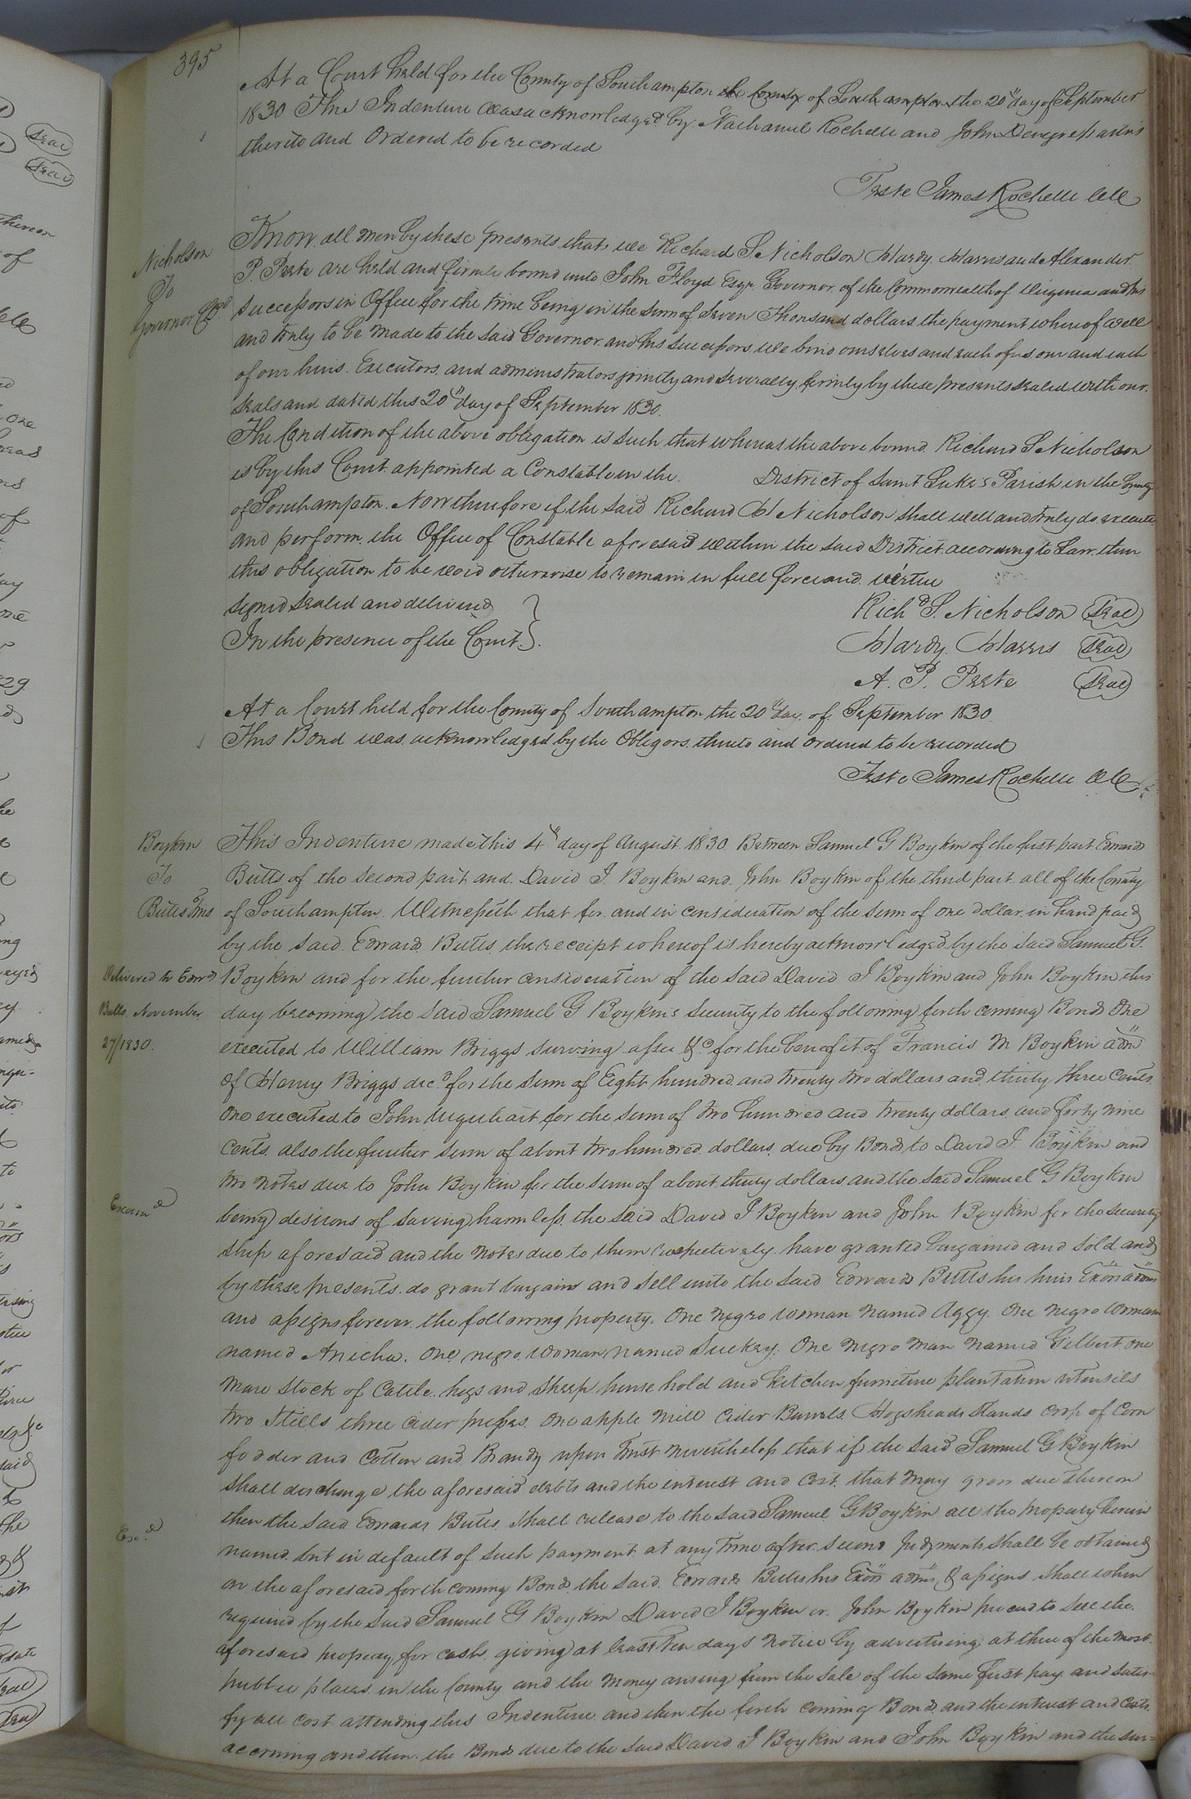 395
At a Court held for the County of Southampton the County of Southampton the 20th day of September
1830 This Indenture was acknowledged by Nathaniel Rochelle and John Denegre parties
thereto and Ordered to be recorded
Teste James Rochelle Clk
Nicholson
To
Governor Bd
Know all men by these presents that we Richard S Nicholson Hardy Harris and Alexander
P. Peete are held and firmly bound unto John Floyd Esqr Governor of the Commonwealth of Virginia and his
successors in Office for the time being in the sum of Seven Thousand dollars the payment whereof well
and truly to be made to the said Governor and his successors we bind ourselves and each of us our and each
of our heirs Executors and administrators jointly and severally firmly by these presents sealed with our
seals and dated this 20th day of September 1830.
The Condition of the above obligation is such that whereas the above bound Richard S Nicholson
is by this Court appointed a Constable in the District of Saint Luke's Parish in the County
of Southampton. Now therefore if the said Richard H Nicholson shall well and truly do execute
and perform the Office of Constable aforesaid within the said District according to Law, then
this obligation to be void otherwise to remain in full force and virtue
Signed Sealed and delivered
In the presence of the Court
Richd S. Nicholson Seal
Hardy Harris Seal
A. P. Peete Seal
At a Court held for the County of Southampton the 20th day of September 1830
This Bond was acknowledged by the Obligors thereto and ordered to be recorded
Teste James Rochelle Clk
Boykin
To
Butts Tms
Delivered to Edwd
Butts November
27/1830.
This Indenture made this 4th day of August 1830 Between Samuel G Boykin of the first part Edward
Butts of the second part and David J Boykin and John Boykin of the third part all of the County
of Southampton Witnesseth that for and in consideration of the sum of one dollar in hand paid
by the said Edward Butts the receipt whereof is hereby acknowledged by the said Samuel G.
Boykin and for the further consideration of the said David J Boykin and John Boykin this
day becoming the said Samuel G Boykin's security to the following forth coming Bonds One
executed to William Briggs surving assee &c for the benefit of Francis M Boykin adm
of Henry Briggs decd for the sum of Eight hundred and twenty two dollars and thirty three cents
One executed to John Urquhart for the sum of two hundred and twenty dollars and forty nine
cents also the further sum of about two hundred dollars due by Bond to David J. Boykin and
two notes due to John Boykin for the sum of about thirty dollars and the said Samuel G Boykin
Examd
being desirous of saving harmless the said David J Boykin and John Boykin for the security
ship aforesaid and the notes due to them respectively have granted bargained and sold and
by these presents do grant bargain and sell unto the said Edward Butts his heirs Exors adms
and assigns forever the following property. One negro woman named Aggy. One negro woman
named Anicha. One negro woman named Suckey. One negro man named Gilbert one
mare stock of Cattle, hogs and sheep house hold and kitchen furniture plantation utensils
two Stills three cider presses one apple mill Cider Barrels Hogsheads Stands crop of Corn
fodder and Cotton and Brandy upon trust nevertheless that if the said Samuel G Boykin
shall discharge the aforesaid debts and the interest and cost that may grow due thereon
Exd
then the said Edward Butts shall release to the said Samuel G Boykin all the property herein
named but in default of such payment at any time after second Judgments shall be obtained
on the aforesaid forth coming Bonds the said Edward Butts his Exors adms & assigns shall when
required by the said Samuel G Boykin David J Boykin or John Boykin proceed to sell the
aforesaid property for cash giving at least Ten days notice by advertising at three of the most
public places in the County and the money arising from the sale of the same first pay and satis-
fy all cost attending this Indenture and then the forth coming Bonds and the interest and costs
accruing and then the Bonds due to the said David J Boykin and John Boykin and the sur=